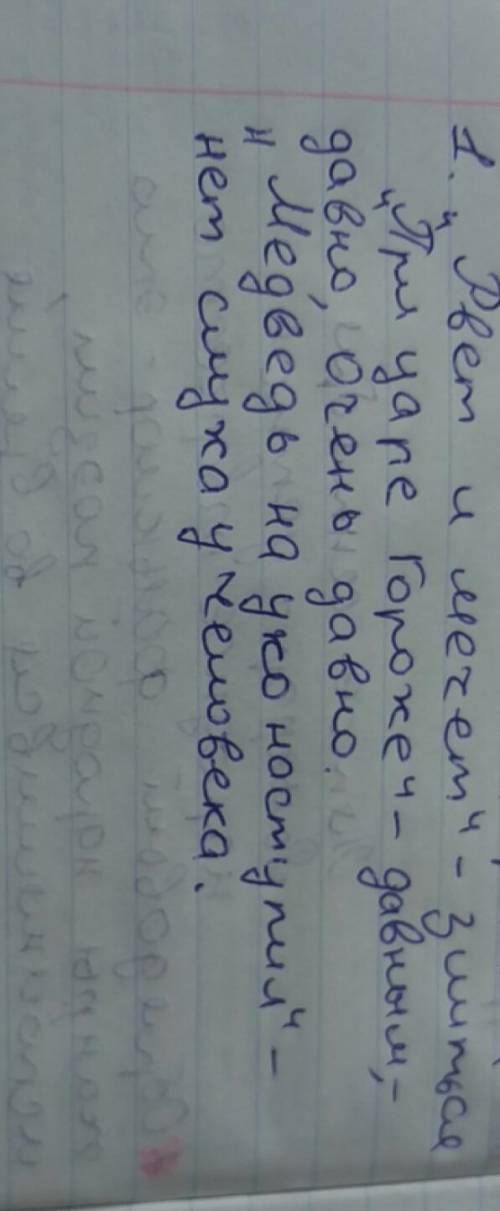 1. "Рвет и мечет" - злиться
"При царе Горохе" - давным,-
давно, очень давно.
"Медведь на ухо ноступил" -
нет слуха у человека.